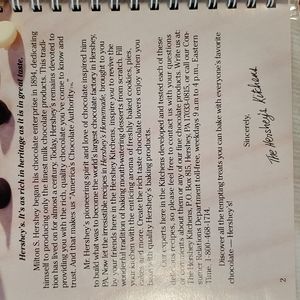 Hershey's. It's as rich in heritage as it is in great taste.
Milton S. Hershey began his chocolate enterprise in 1894, dedicating
himself to producing only the highest quality products. This tradi-
tion has lived on for almost a century. Today, Hershey's remains devoted to
providing you with the rich, quality chocolate you've come to know and
trust. And that makes us "America's Chocolate Authority".
Mr. Hershey's pioneering spirit and love of chocolate inspired him
to build what was to become the world's largest chocolate factory in Hershey,
PA. Now let the irresistible recipes in Hershey's Homemade, brought to you
by your friends here in the Hershey Kitchens, inspire you to revive the
wonderful tradition of baking mouth-watering desserts from scratch. Fill
your kitchen with the enticing aroma of freshly baked cookies, pies,
cakes and more. Create the rich taste chocolate lovers enjoy when you
bake with quality Hershey's baking products.
Our experts here in the Kitchens developed and tested each of these
delicious recipes, so please feel free to contact us with your questions
or comments about them or any of our fine chocolate products. Write us at:
The Hershey Kitchens, P.O. Box 815, Hershey, PA 17033-0815, or call our Con-
sumer Relations Department toll-free, weekdays 9 a.m. to 4 p.m. Eastern
Time, 1-800-468-1714.
Discover all the tempting treats you can bake with everyone's favorite
chocolate — Hershey's!
Sincerely,
The Hershey Kitchens
2